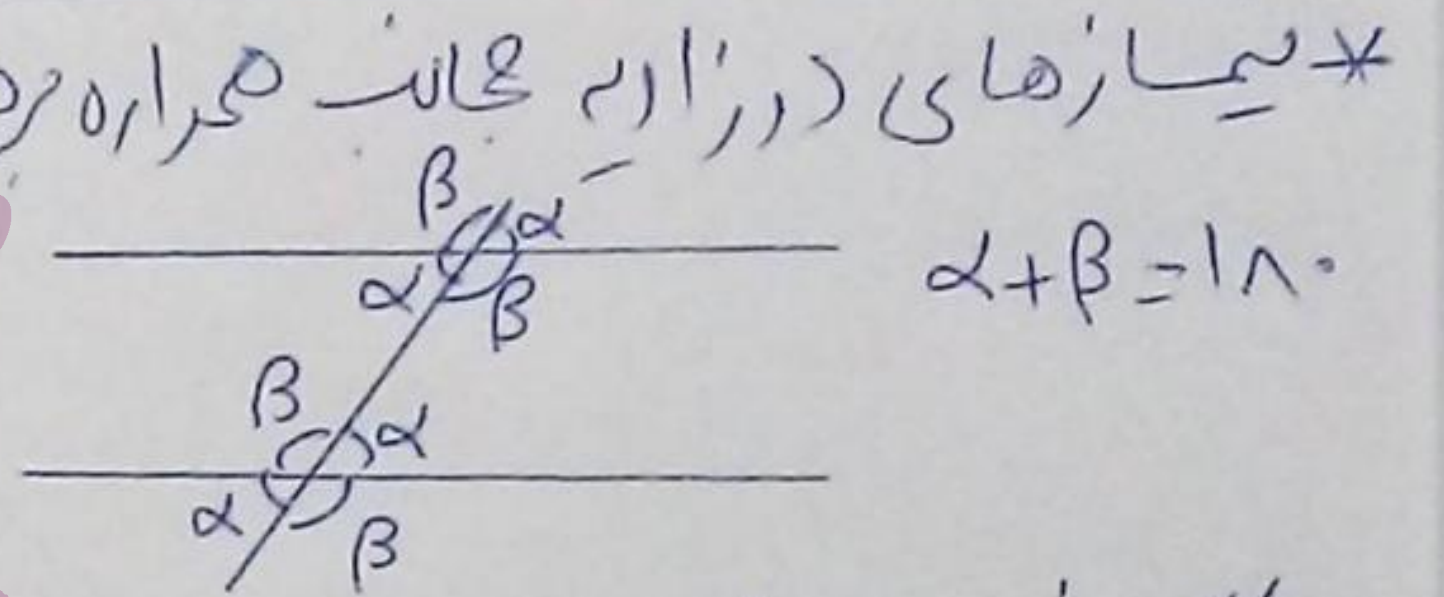 * نیمسازهای دو زاویه مجانب همواره
β α
α β
α+β=۱۸۰
β α
α β